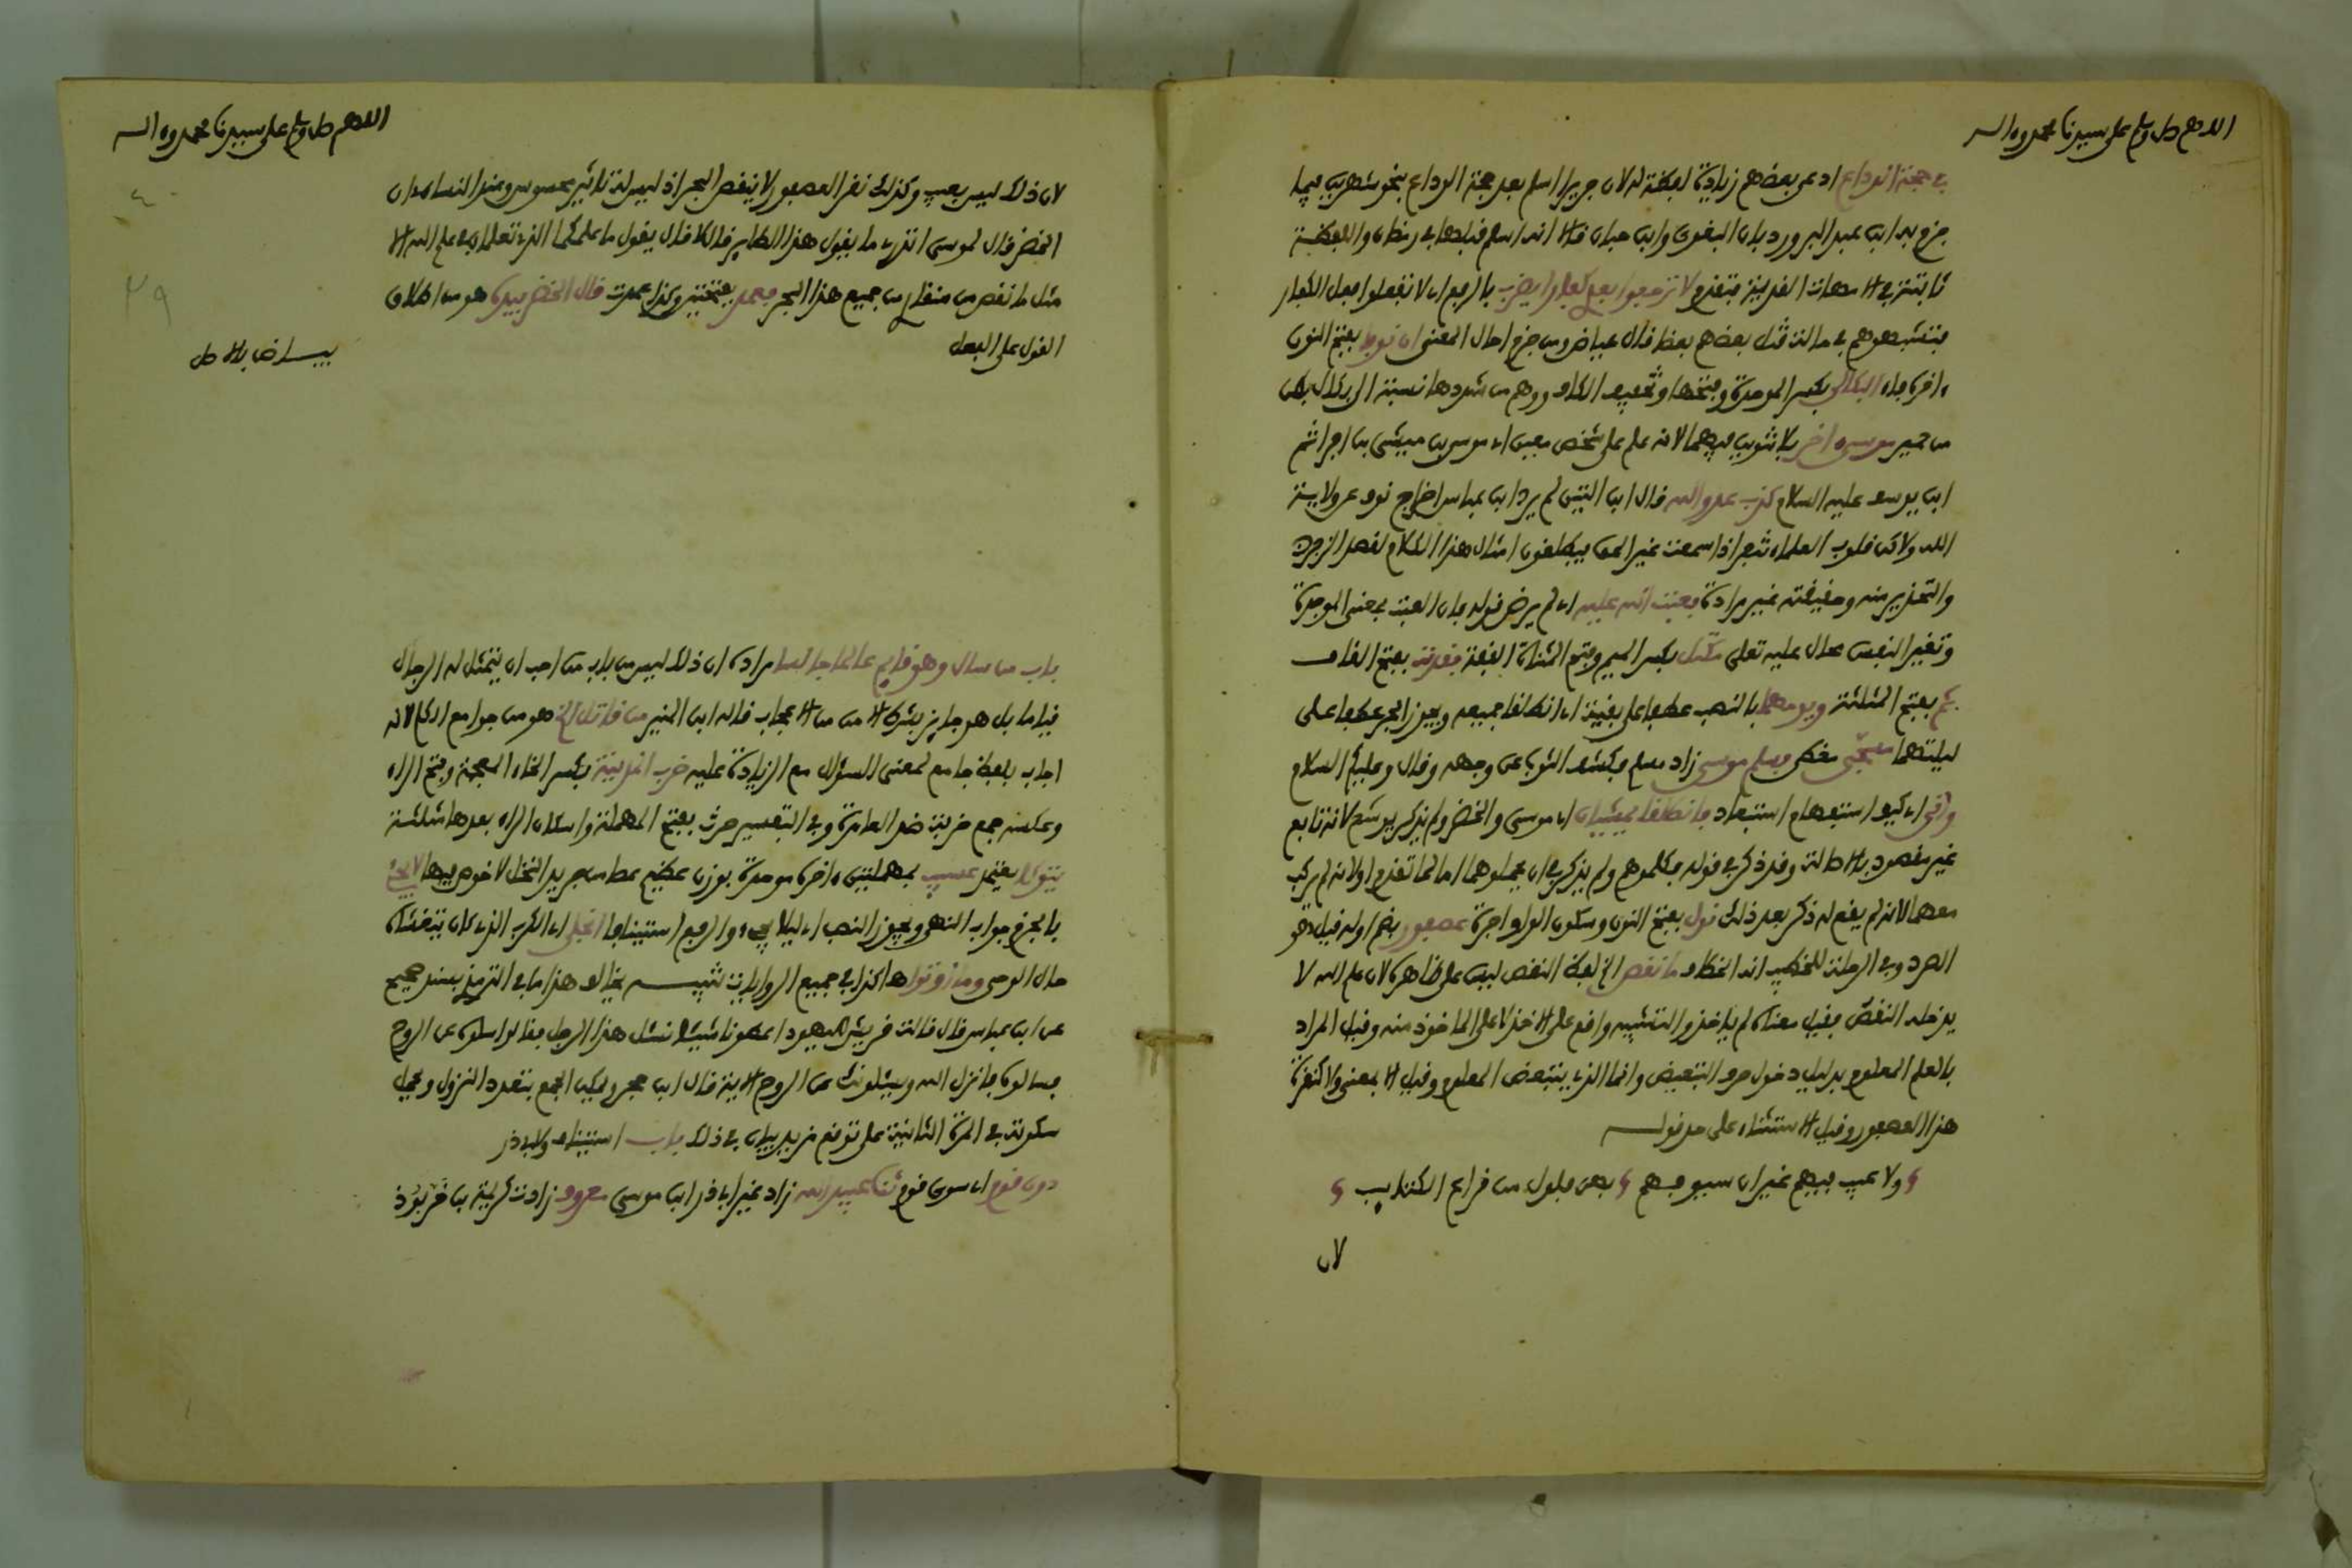 اللهم صل وسلم على سيدنا محمد وءاله
في حجة الوداع ادعى بعضهم زيادة لفظة له لان جريرا اسلم بعد حجة الوداع بنحو شهرين فيما
جزم به ابن عبد البر ورد بان البغوى وابن حبان قالا انه اسلم قبلها في رمضان واللفظة
ثابتة في الامهات القديمة فتقدم لا ترجعوا بعدي كفارا يضرب بالرفع اي لا تفعلوا فعل الكفار
فتشبهوهم في حالة قتل بعضهم بعضا قال عياض ومن جزم احال المعنى ان نوفا بفتح النون
ءاخره فاء البكالي بكسر الموحدة وفتحها وتخفيف الكاف ووهم من شددها نسبة الى بكال بطن
من حمير موسى ءاخر بلا تنوين فيهما لانه علم على شخص معين اي موسى بن ميشى بن افراثيم
ابن يوسف عليه السلام كذب عدو الله قال ابن التين لم يرد ابن عباس اخراج نوف عن ولاية
الله ولاكن قلوب العلماء تنفر اذا سمعت غير الحق فيطلقون امثال هذا الكلام لقصد الزجر
والتحذير منه وحقيقته غير مرادة فعتب الله عليه اي لم يرض قوله فان العتب بمعنى الموجدة
وتغير النفس محال عليه تعلى مكتل بكسر الميم وفتح المثناة الفوقية فقدت بفتح القاف
ثم بفتح المثلثة ويومهما بالنصب عطفا على بقية اي انطلقا جميعه ويجوز الجر عطفا على
ليلتهما مسجى مغطى فسلم موسى زاد مسلم فكشف الثوب عن وجهه وقال وعليكم السلام
وانى اي كيف استفهام استبعاد فانطلقا يمشيان اي موسى والخضر ولم يذكر يوشع لانه تابع
غير مقصود بالاصالة وقد ذكر في قوله فكلموهم ولم يذكر في ان يحملوهما اما لما تقدم اولانه لم يركب
معهما لانه لم يقع له ذكر بعد ذلك نول بفتح النون وسكون الواو اجرة عصفور بضم اوله قيل هو
الصرد وفي الرحلة للخطيب انه الخطاف ما نقص الخ لفظ النقص ليس على ظاهره لان علم الله لا
يدخله النقص فقيل معناه لم ياخذ والتشبيه واقع على الاخذ لا على الماخوذ منه وقيل المراد
بالعلم المعلوم بدليل دخول حرف التبعيض وانما الذي يتبعض المعلوم وقيل الا بمعنى ولا كنقرة
هذا العصفور وقيل الاستثناء على حد قوله
ولا عيب فيهم غير ان سيوفهم بهن فلول من قراع الكتايب
لان
اللهم صل وسلم على سيدنا محمد وءاله
لان ذلك ليس بعيب وكذلك نقر العصفور لا ينقص البحر اذ ليس له تاثير محسوس وعند النسائي ان
الخضر قال لموسى اتدرى ما يقول هذا الطاير قال لا قال يقول ما علمكما الذي تعلمان في علم الله الا
مثل ما نقص من منقاري من جميع هذا البحر فعمد بفتحتين وكذا عمدت قال الخضر بيده هو من اطلاق
القول على الفعل
بياض بالاصل
باب من سال وهو قايم عالما جالسا مراده ان ذلك ليس من باب من احب ان يتمثل له الرجال
قياما بل هو جايز بشرط الامن من الاعجاب قاله ابن المنير من قاتل الخ هو من جوامع الكلم لانه
اجاب بلفظ جامع لمعنى السؤال مع الزيادة عليه خرب المدينة بكسر الخاء المعجمة وفتح الراء
وعكسه جمع خربة ضد العامرة وفي التفسير حرث بفتح المهملة واسكان الراء بعدها مثلثة
يتوكا يعتمد عسيب بمهملتين ءاخره موحدة بوزن عظيم عصا من جريد النخل لاخوص فيها لا يجئ
بالجزم جواب النهي ويجوز النصب اي ليلا يجيء والرفع استينافا انجلى اي الكرب الذي كان يتغشاه
حال الوحى وما اوتوا هاكذا في جميع الروايات تنبيه يخالف هذا ما في الترمذي بسند صحيح
عن ابن عباس قال قالت قريش لليهود اعطونا شيئا نسئل هذا الرجل فقالوا سلوه عن الروح
فسالوه فانزل الله ويسئلونك عن الروح الاية قال ابن حجر ويمكن الجمع بتعدد النزول ويحمل
سكوته في المرة الثانية على توقع مزيد بيان في ذلك باب استيناف ولابي ذر
دون قوم اي سوى قوم ثنا عبيد الله زاد غير ابي ذر ابن موسى معروف زادت كريمة بن خربوذ
٤٠
٣٩